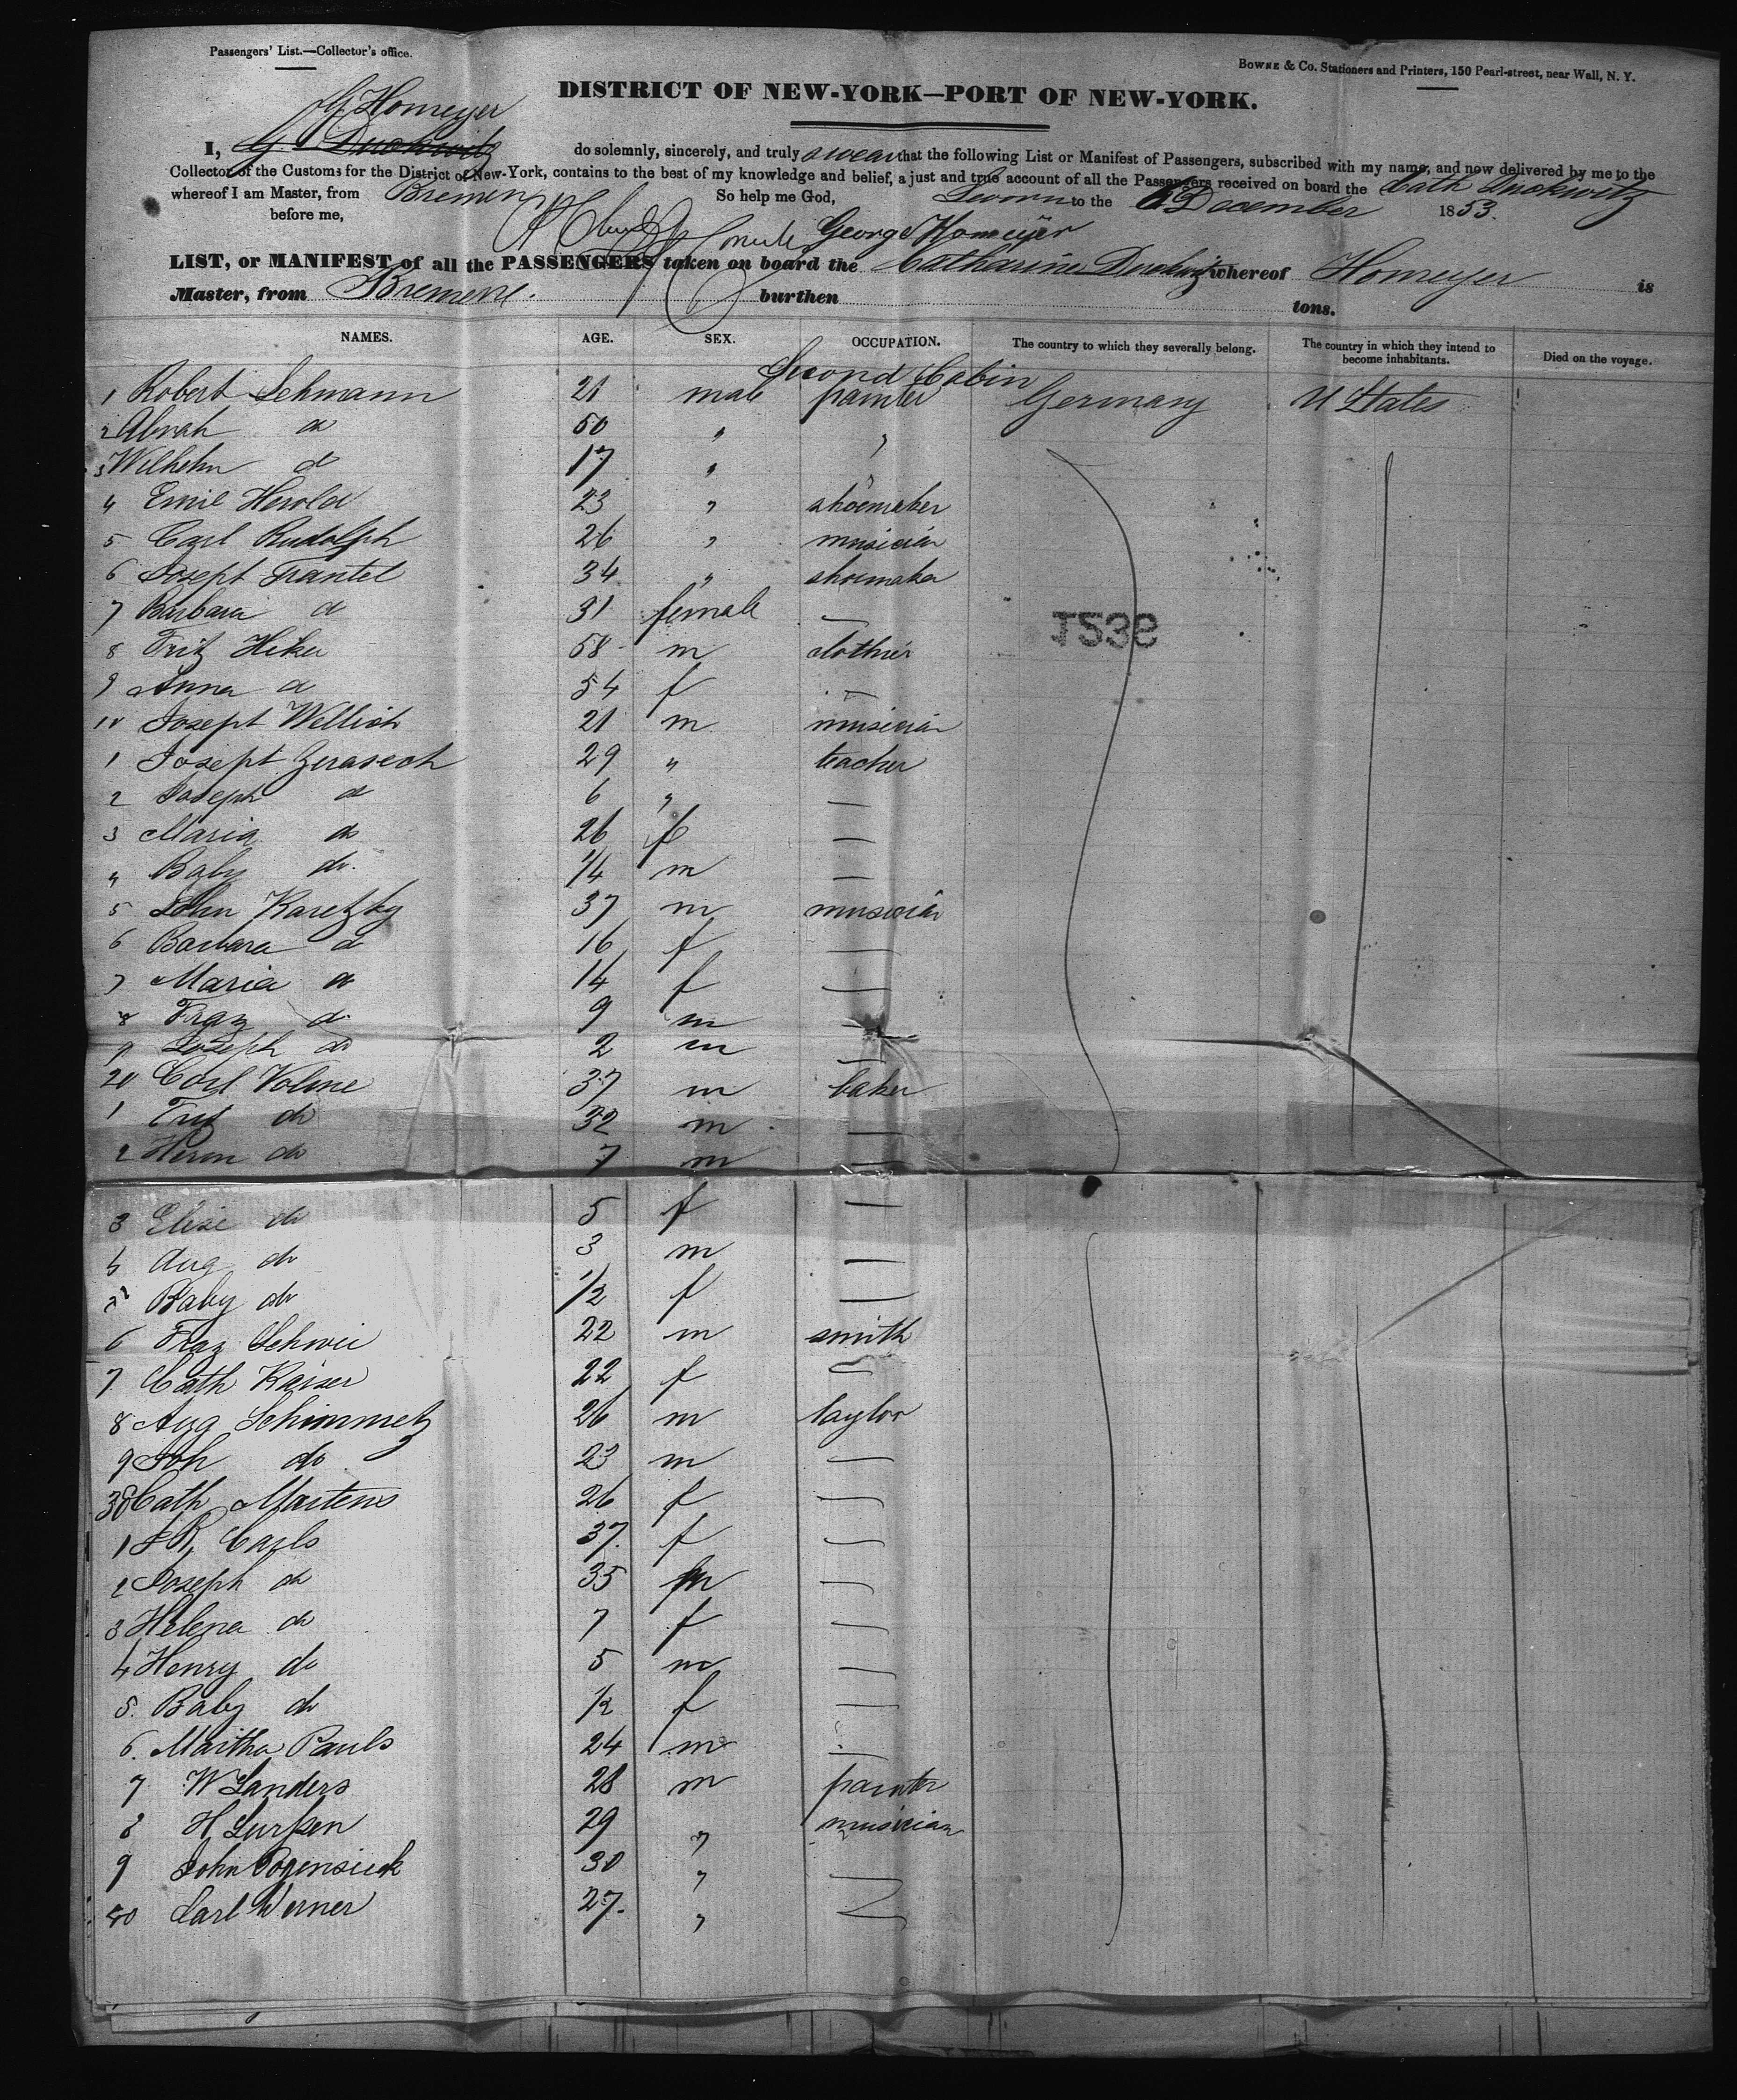 Passengers' List.—Collector's office.
BOWNE & Co. Stationers and Printers, 150 Pearl-street, near Wall, N. Y.
DISTRICT OF NEW-YORK—PORT OF NEW-YORK.
G Homeyer
I, G. Duckwitz do solemnly, sincerely, and truly swear that the following List or Manifest of Passengers, subscribed with my name, and now delivered by me to the
Collector of the Customs for the District of New-York, contains to the best of my knowledge and belief, a just and true account of all the Passengers received on board the Cath Duckwitz
whereof I am Master, from Bremen So help me God, Sworn to the 6 December 1853.
before me, George Homeyer
LIST, or MANIFEST of all the PASSENGERS taken on board the Catharine Duckwitz whereof Homeyer is
Master, from Bremen. burthen tons.
NAMES. AGE. SEX. OCCUPATION. The country to which they severally belong. The country in which they intend to become inhabitants. Died on the voyage.
Second Cabin
1 Robert Lehmann 21 male painter Germany U States
2 do 50 " "
3 Wilhelm do 17 " "
4 Emil Herold 23 " shoemaker
5 Carl Rudolph 26 " musician
6 Joseph Frantel 34 " shoemaker
7 Barbara do 31 female —
8 Fritz Hiker 58 m clothier
9 Anna do 54 f —
10 Joseph Wellich 21 m musician
1 Joseph Zerasech 29 " teacher
2 Joseph do 6 " —
3 Maria do 26 f —
4 Baby do. 1/4 m —
5 John Karetzky 37 m musician
6 Barbara do 16 f —
7 Maria do 14 f —
8 Fraz do 9 m —
9 Joseph do 2 m —
20 Carl Volme 37 m baker
1 Fritz do 32 m —
2 Herm do 7 m —
3 Elise do 5 f —
4 Aug do 3 m —
5 Baby do 1/2 f —
6 Fraz Schwei 22 m smith
7 Cath Kaiser 22 f —
8 Aug Schimmetz 26 m taylor
9 Joh do 23 m —
30 Cath Martens 26 f —
1 Carls 37. f —
2 Joseph do 35 m —
3 Helena do 7 f —
4 Henry do 5 m —
5. Baby do 1/2 f —
6. Martha Pauls 24 m —
7 W Landers 28 m painter
8 H Lurssen 29 " musician
9 John Pogensiek 30 " —
40 Carl Werner 27. "
1253S